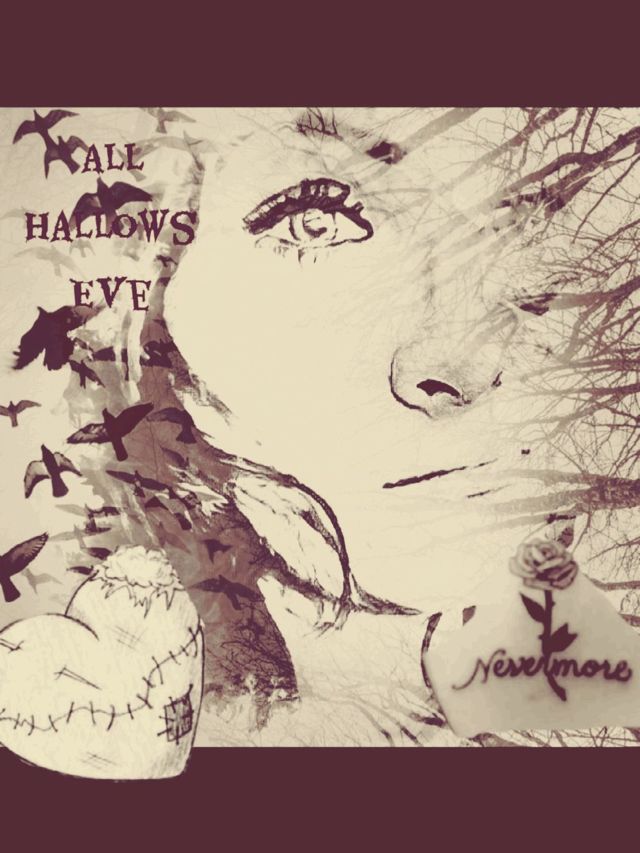 ALL
HALLOWS
EVE
Nevermore